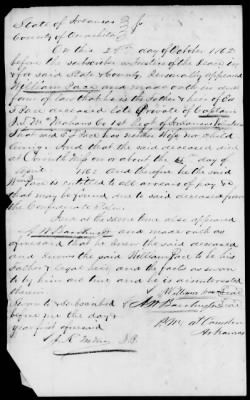 State of Arkansas
County of Ouachita
On this 28th day of October 1862
before the subscriber a Justice of the Peace in
& for said State & County Personally appeared
William Pace and made oath in due
form of law that he is the Father & heir of
Pace deceased late Private of Captain
Co 1st Regt of Arkansas
that said Pace has neither wife nor child
living And that the said deceased died
at Corinth Miss on or about the day of
1862 and therefore he the said
Wm Pace is entitled to all arrears of pay &c
that may be found due to said deceased from
the Confederate States
And at the same time also appeared
A W and made oath as
aforesaid that he knew the said deceased
and knows the said William Pace to be his
Father & legal heir and the facts as sworn
to by him are true and he is disinterested
therein
William his mark Pace
Sworn to & subscribed
before me the day &
year first aforesaid
P.M. at Camden
Arkansas
J.P.